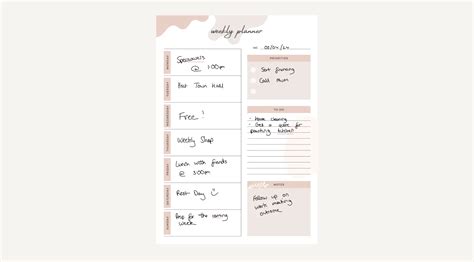 weekly planner
MONDAY
@ 1:00pm
TUESDAY
Town Hall
WEDNESDAY
Free!
THURSDAY
Weekly Shop
FRIDAY
Lunch with friends
@ 3:00pm
SATURDAY
Rest Day
SUNDAY
Prep for the coming
week
PRIORITIES
Sort
Call Mum
TO DO
Home cleaning
Get a quote for
painting
NOTES
Follow up on
work meeting
outcome